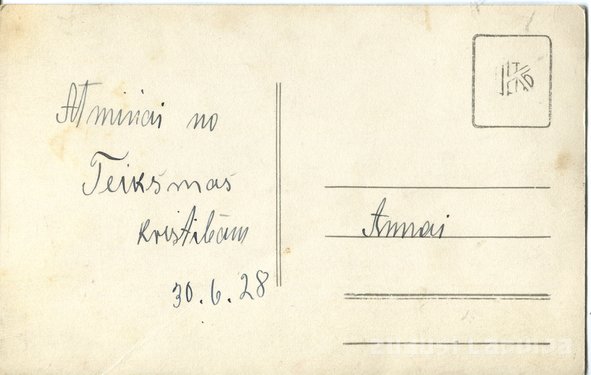 Atmiņai no
Teiksmas
kristibām
30.6.28
Annai